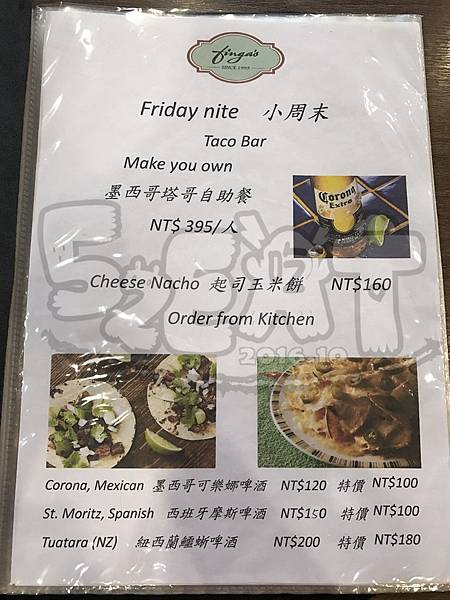 finga's
SINCE 1995
Friday nite 小周末
Taco Bar
Make you own
墨西哥塔哥自助餐
NT$ 395/人
Corona
Extra
Cheese Nacho 起司玉米餅 NT$160
Order from Kitchen
2016.10
Corona, Mexican 墨西哥可樂娜啤酒 NT$120 特價 NT$100
St. Moritz, Spanish 西班牙摩斯啤酒 NT$150 特價 NT$100
Tuatara (NZ) 紐西蘭鱷蜥啤酒 NT$200 特價 NT$180